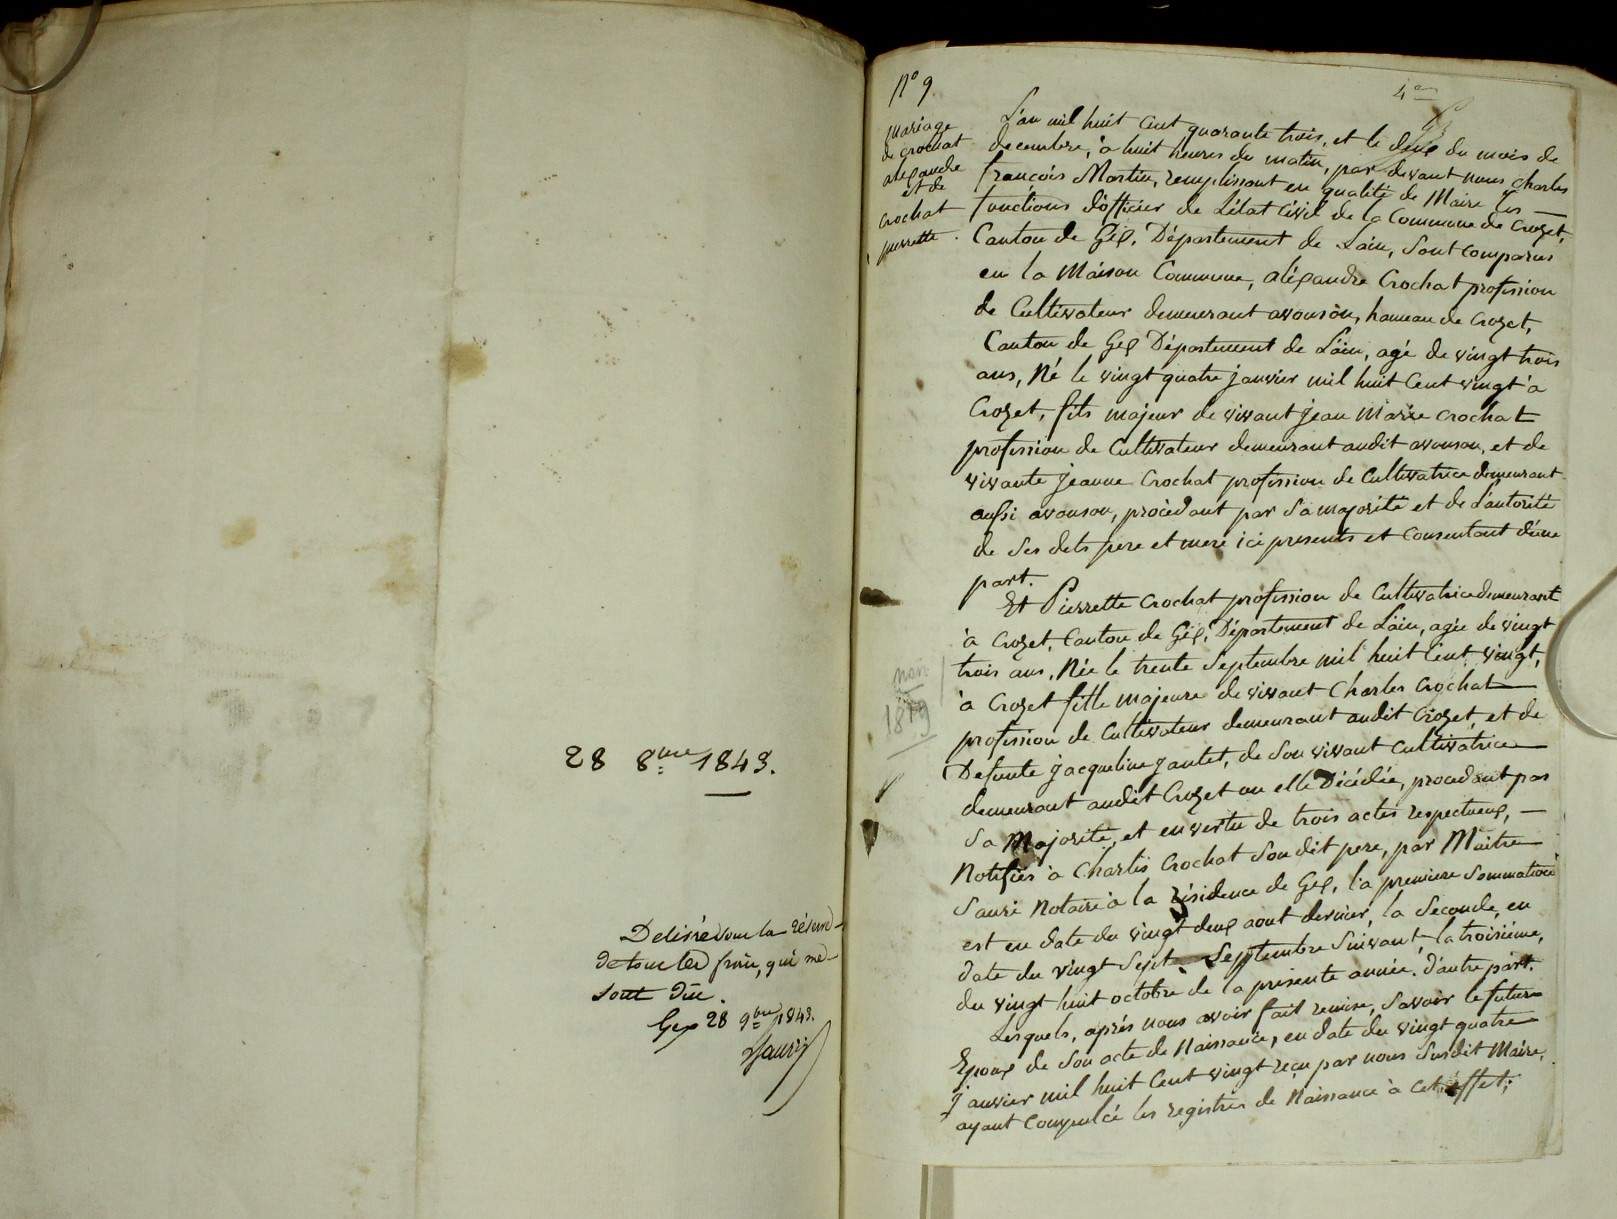 28 8bre 1843.
Delivré sous la réserve
de tous les frais, qui me
sont dûs.
Gex 28 9bre 1843.
Sauri
N° 9
4e
Mariage
de crochat
aléxandre
et de
crochat
pierrette.
L'an mil huit Cent quarante trois, et le deux du mois de
decembre, à huit heures du matin, par devant nous charles
françois Martin, remplissant en qualité de Maire les
fonctions d'officier de L'état Civil de la Commune de Crozet,
Canton de Gex, Département de Lain, sont comparus
en la Maison Commune, aléxandre Crochat profession
de Cultivateur demeurant avouson, hameau de Crozet,
Canton de Gex Département de L'ain, agé de vingt trois
ans, Né le vingt quatre janvier mil huit Cent vingt à
Crozet, fils majeur de vivant Jean Marie Crochat
profession de Cultivateur demeurant audit avouson, et de
vivante jeanne Crochat profession de Cultivatrice demeurant
aussi avouson, procédant par Sa majorité et de L'autorité
de Ses dits pere et mere ici presents et Consentant d'une
part.
Et Pierrette Crochat profession de Cultivatrice demeurant
à Crozet, Canton de Gex, Département de L'ain, agée de vingt
trois ans, Née le trente Septembre mil huit Cent vingt,
non
1819
à Crozet fille majeure de vivant Charles Crochat
profession de Cultivateur demeurant audit Crozet, et de
Defunte jacqueline jantet, de Son vivant Cultivatrice
demeurant audit Crozet ou elle Décédée, procedant par
Sa Majorité, et en vertu de trois actes respectueux,
Notifiés à Charles Crochat Son dit pere, par Maitre
Sauri Notaire à la résidence de Gex, la premiere Sommation
est en date du vingt deux aout dernier, la Seconde, en
date du vingt Sept Septembre Suivant, la troisième,
du vingt huit octobre de la présente année. D'autre part.
Lesquels, après nous avoir fait remise, Savoir le futur
Epoux de Son acte de Naissance, en date du vingt quatre
Janvier mil huit Cent vingt reçu par nous Susdit Maire,
ayant Compulcé les registres de Naissance à Cet éffet;